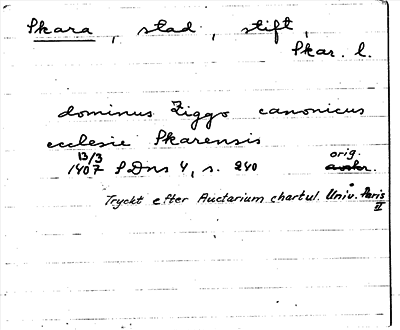 Skara, stad, stift,
Skar. l.
dominus Ziggo canonicus
ecclesie Skarensis
13/3 orig.
1407 SDns 4, s. 240
Tryckt efter Auctarium chartul. Univ. Paris
II